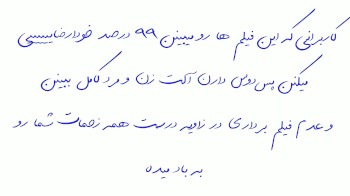 کاربرانی که این فیلم ها رو میبینن ۹۹ درصد خودارضاییییی
میکنن پس دوس دارن آلت زن و مرد کامل ببینن
و عدم فیلم برداری در زاویه درست همه زحمات شما رو
به باد میده